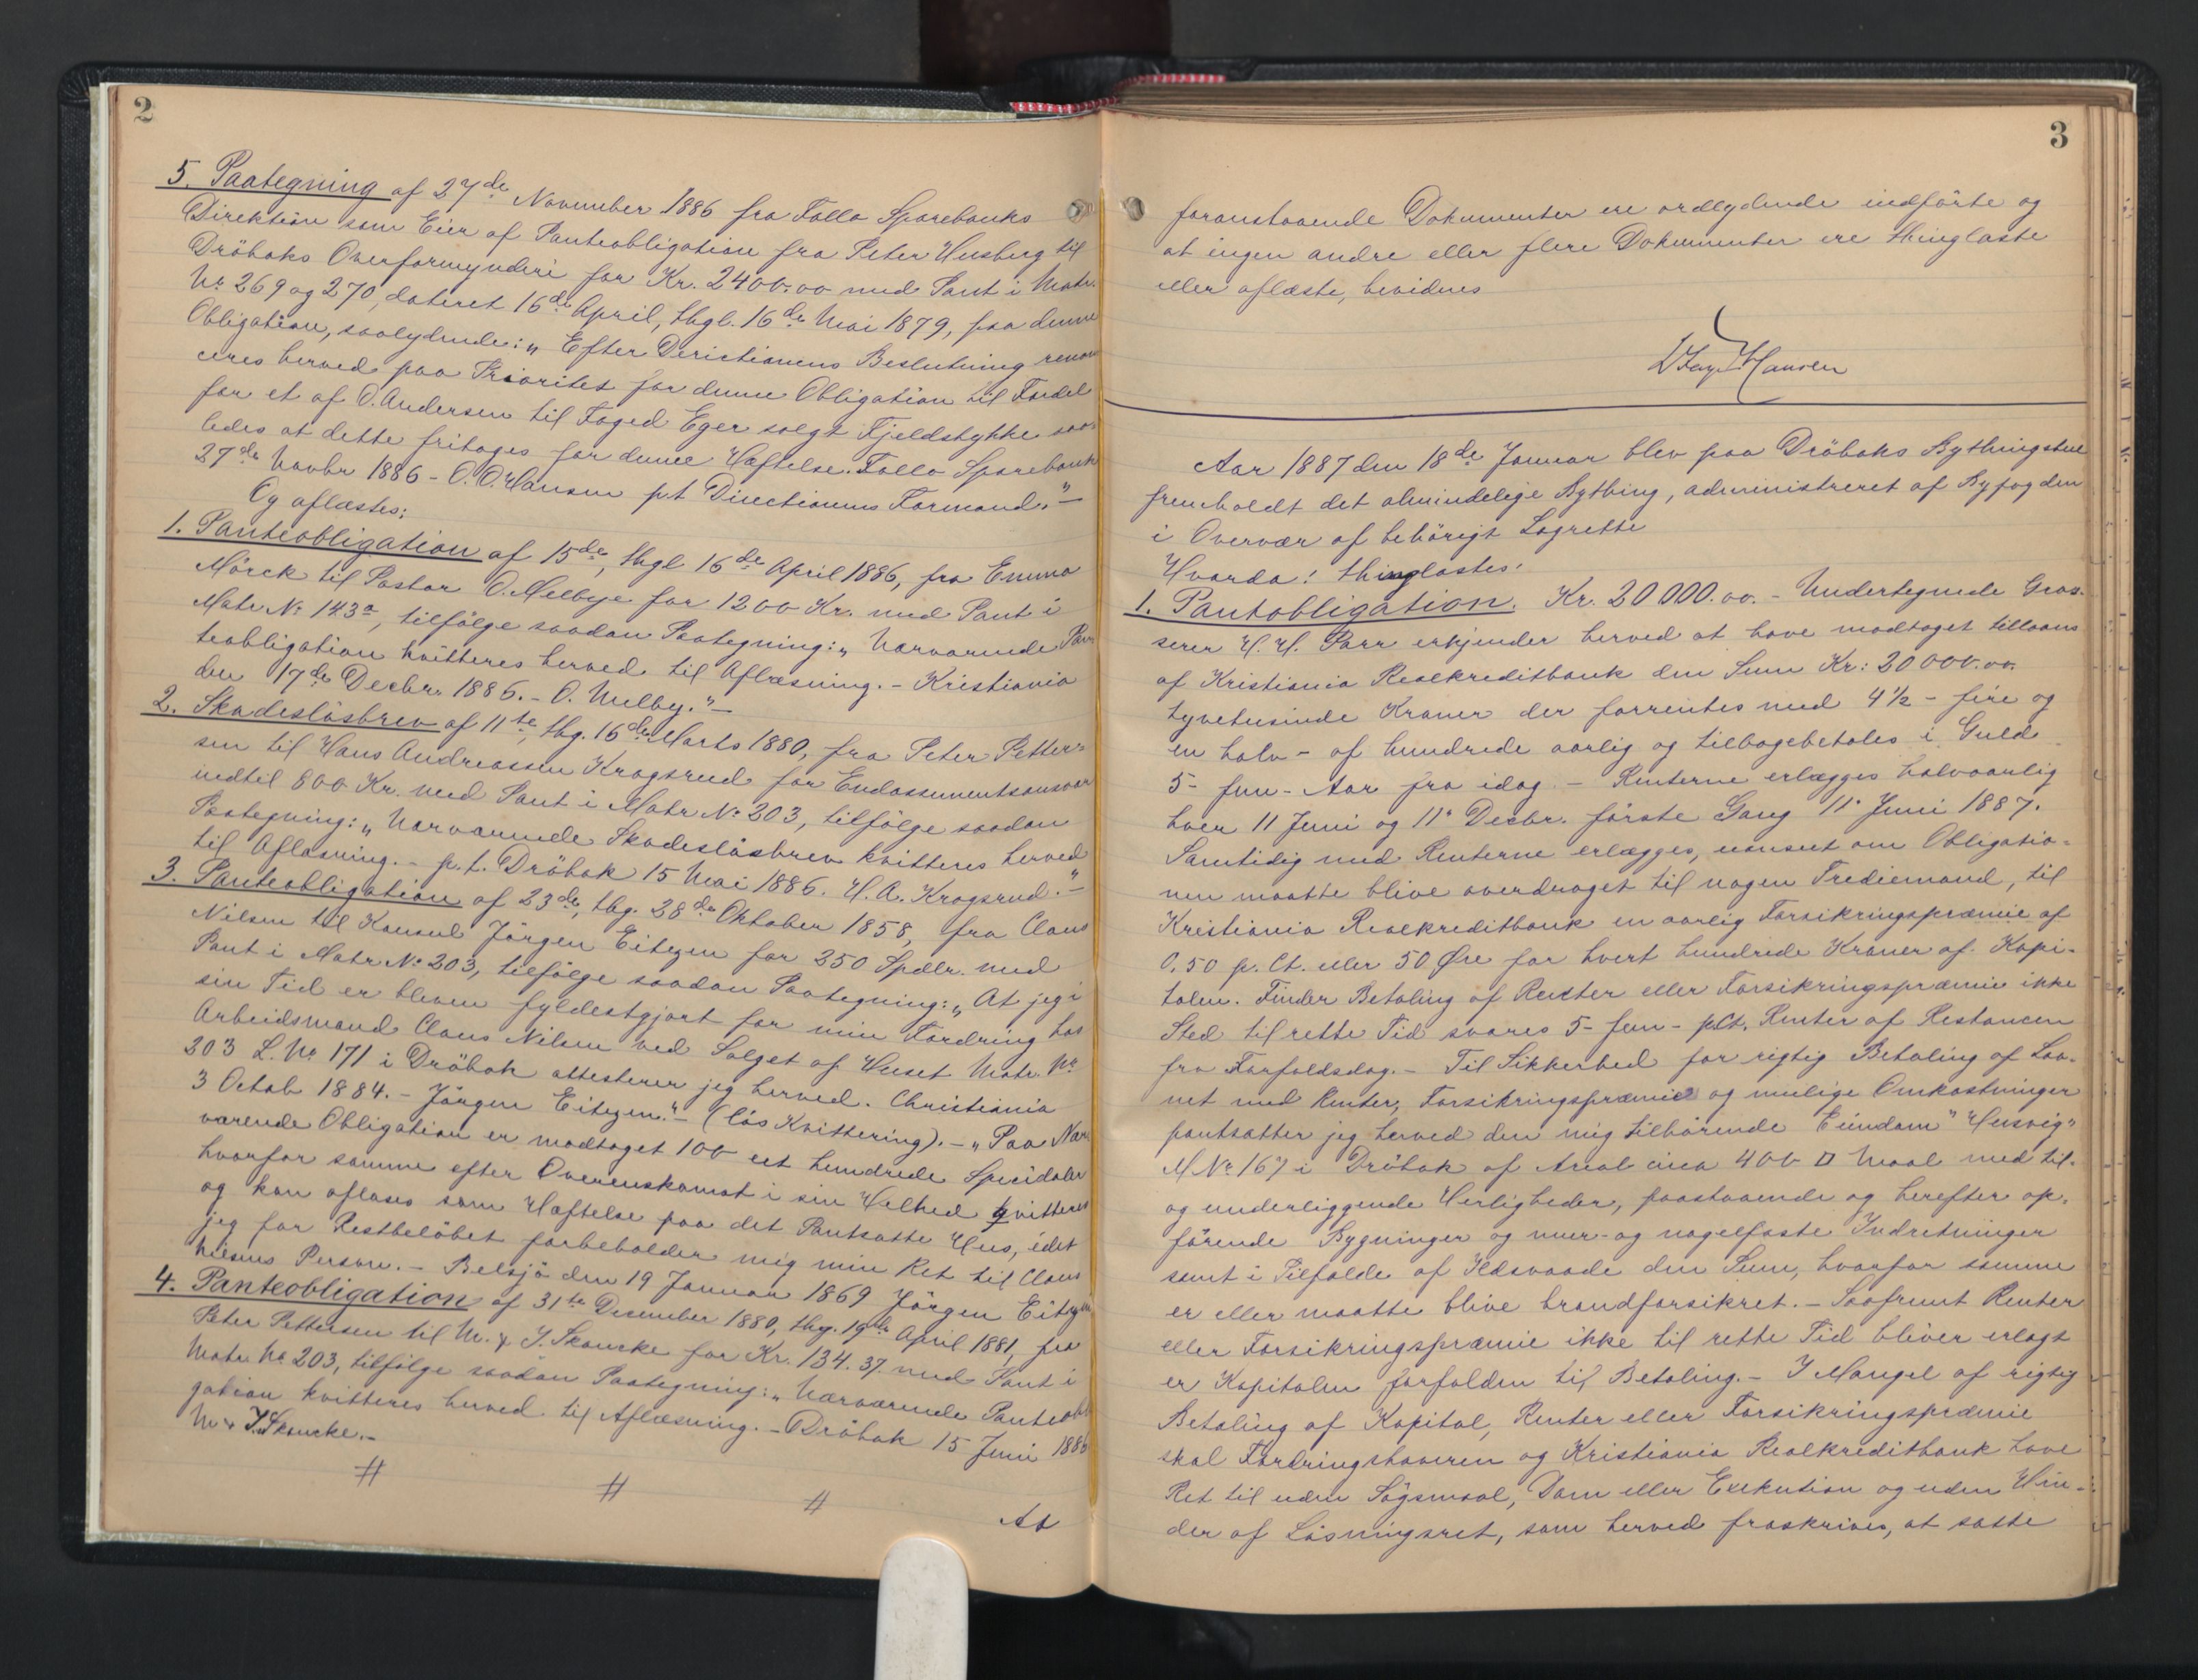 2
5. Paategning af 27de November 1886 fra Follo Sparebanks
Direktion som Eier af Panteobligation fra Peter Husberg til
Dröbaks Overformynderi for Kr. 2400.00 med Pant i Matr.
No 269 og 270, dateret 16de April, thgl. 16de Mai 1879, paa denne
Obligation, saalydende: „Efter Deriktionens Beslutning renon
ceres herved paa Prioritet for denne Obligation til Fordel
for et af O. Andersen til Foged Eger solgt Fjeldstykke saa
ledes at dette fritages for denne Hæftelse. Follo Sparebank
27de Novbr 1886 - O. O. Hansen p.t Directionens Formand."-
Og aflæstes:
1. Panteobligation af 15de, thgl 16de April 1886, fra Emma
Mörck til Pastor O. Melbye for 1200 Kr. med Pant i
Matr No 143a, tilfölge saadan Paategning: „Nærværende Pan
teobligation kvitteres herved til Aflæsning. - Kristiania
den 17de Decbr. 1886. - O. Melby."-
2. Skadeslösbrev af 11te, thg. 16de Marts 1880, fra Peter Petter=
sen til Hans Andreassen Krogsrud for Endossementsansvar
indtil 800 Kr. med Pant i Matr No 203, tilfölge saadan
Paategning: „Nærværende Skadeslösbrev kvitteres herved
til Aflæsning. - p.t. Dröbak 15 Mai 1886. H. A. Krogsrud."-
3. Panteobligation af 23de, thg. 28de Oktober 1858, fra Claus
Nilsen til Konsul Jörgen Eitzen for 250 Spdlr. med
Pant i Matr No 203, tilfölge saadan Paategning: „At jeg i
sin Tid er bleven fyldestgjort for min Fordring hos
Arbeidsmand Claus Nilsen ved Salget af Huset Matr. No
203 L. No 171 i Dröbak attesterer jeg herved. Christiania
3 Octob 1884. - Jörgen Eitzen."- (lös Kvittering). - „Paa Nær
værende Obligation er modtaget 100 eet hundrede Speridaler
hvorfor samme efter Overenskomst i sin Helhed qvitteres
og kan aflæses som Hæftelse paa det Pantsatte Hus, idet
jeg for Restbelöbet forbeholder mig min Ret til Claus
Niesens Person. - Belsjö den 19 Januar 1869 Jörgen Eitzen
4. Panteobligation af 31te Desember 1880, thg. 19de April 1881, fra
Peter Pettersen til M. & J. Skoucke for Kr. 134.37. med Pant i
Matr. No 203, tilfölge saadan Paategning: „Nærværende Panteobli
gation kvitteres herved til Aflæsning. - Dröbak 15 Juni 1886
M & J. Skoucke.-
# # #
At
3
foranstaaende Dokumenter ere ordlydende indförte og
at ingen andre eller flere Dokumenter ere thinglæste
eller aflæste, bevidnes
Hansen
Aar 1887 den 18de Januar blev paa Dröbaks Bythingstue
fremholdt det almindelige Bything, administreret af Byfogden
i Overvær af behörigt Lagrette
Hvorda: thinglæstes:
1. Pantobligation. Kr. 20 000.00. - Undertegnede Gros-
serer H. H. Parr erkjender herved at have modtaget tillaans
af Kristiania Realkreditbank den Sum Kr: 20 000.00.
tyvetusinde Kroner der forrentes med 4½ - fire og
en halv - af hundrede aarlig og tilbagebetales i Guld
5 - fem - Aar fra idag. - Renterne erlægges halvaarlig
hver 11 Juni og 11' Decbr. förste Gang 11' Juni 1887.
Samtidig med Renterne erlægges, uanseet om Obligatio=
nen maatte blive overdraget til nogen Trediemand, til
Kristiania Realkreditbank en aarlig Forsikringspræmie af
0.50 p. Ct. eller 50 Öre for hvert hundrede Kroner af Kapi=
talen. Finder Betaling af Renter eller Forsikringspræmie ikke
Sted til rette Tid svares 5 - fem - p.Ct. Renter af Restancen
fra Forfaldsdag. - Til Sikkerhed for rigtig Betaling af Laa-
net med Renter, Forsikringspræmie og mulige Omkostninger
pantsætter jeg herved den mig tilhörende Eiendom "Husvig"
M No 167 i Dröbak af Areal circa 400 □ Maal med til-
og underliggende Herligheder, paastaaende og herefter op-
förende Bygninger og mur- og nagelfaste Indretninger
samt i Tilfælde af Ildsvaade den Sum, hvorfor samme
er eller maatte blive brandforsikret. - Saafremt Renter
eller Forsikringspræmie ikke til rette Tid bliver erlagt
er Kapitalen forfalden til Betaling. - I Mangel af rigtig
Betaling af Kapital, Renter eller Forsikringspræmie
skal Fordringshaveren og Kristiania Realkreditbank have
Ret til uden Sögsmaal, Dom eller Exekution og uden Hin-
der af Lösningsret, som herved fraskrives, at sætte